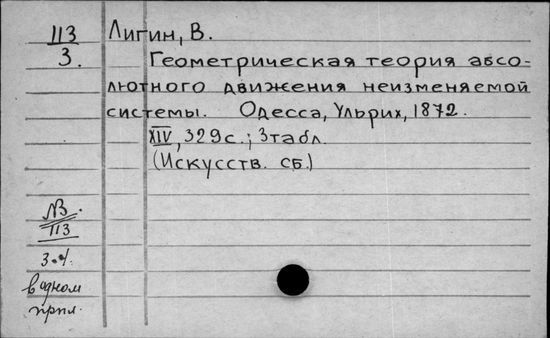 113
3.
Лигин, В.
Геометрическая теория абсо-
лютного движения неизменяемой
системы. Одесса, Ульрих, 1872.
XIV, 329с.; 3табл.
(Искусств. сб.)
113
в одном